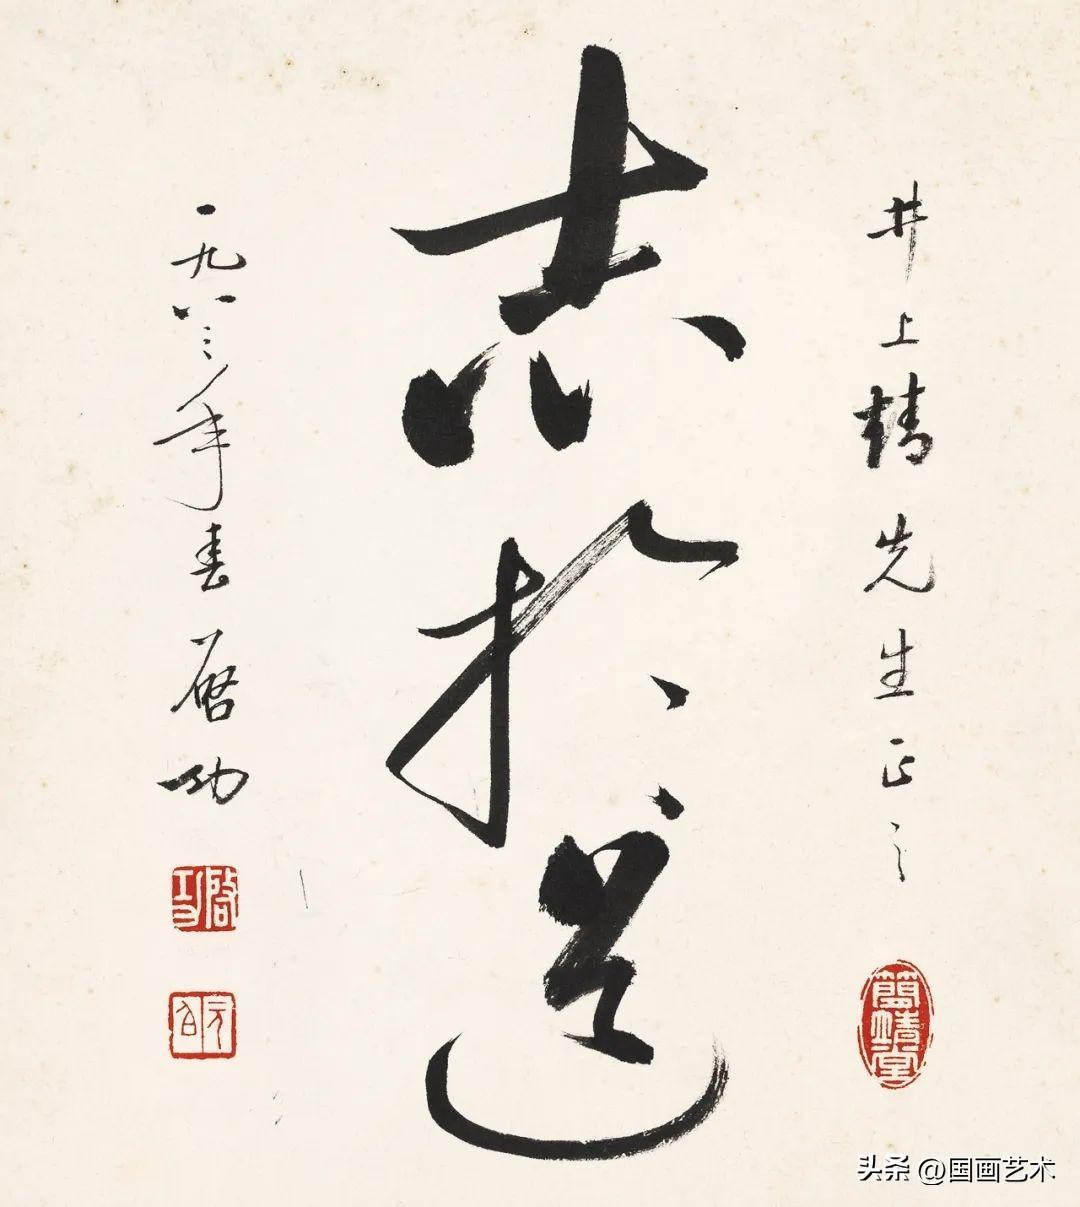 井上靖先生正之
簡靖堂
志於道
一九八三年春啓功
啓功
元白
头条 @国画艺术